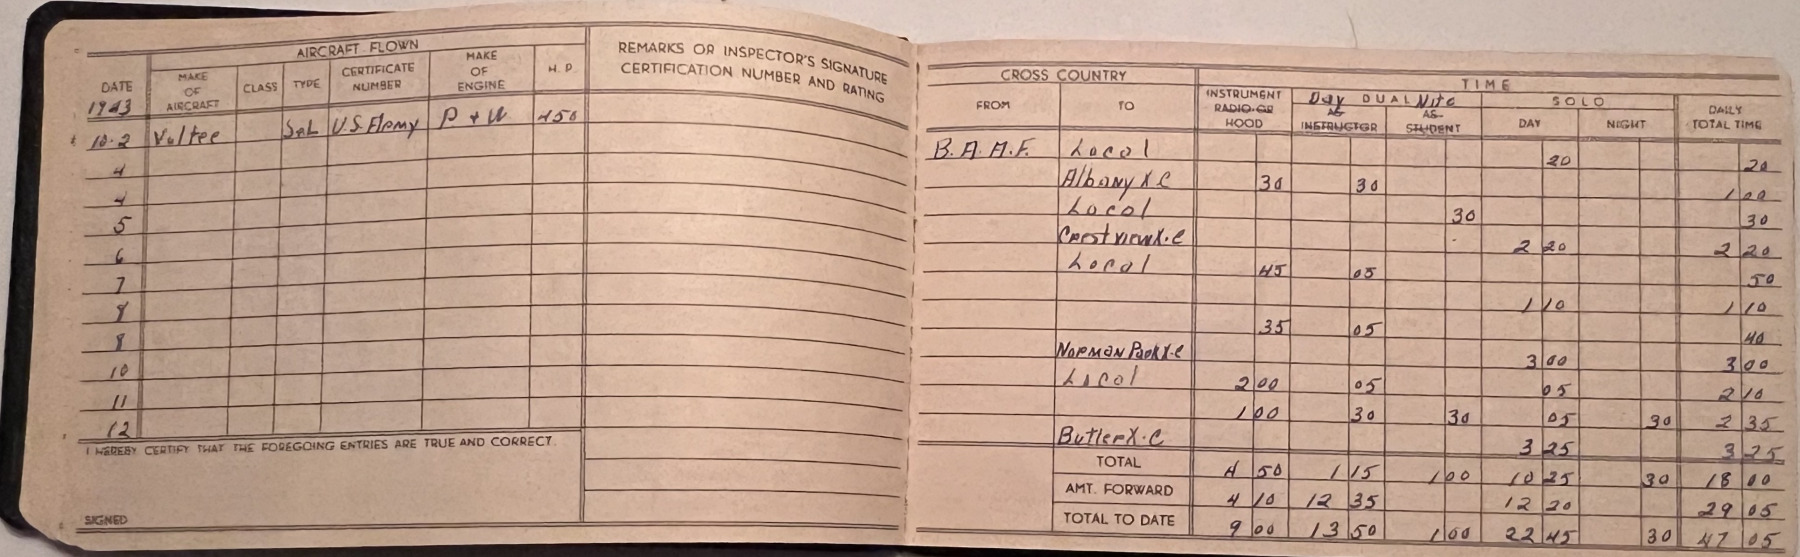 AIRCRAFT FLOWN
DATE MAKE OF AIRCRAFT CLASS TYPE CERTIFICATE NUMBER MAKE OF ENGINE H. P.
REMARKS OR INSPECTOR'S SIGNATURE
CERTIFICATION NUMBER AND RATING
1943
10-2 Vultee S.E.L U.S. Army P + W 450
4
4
5
6
7
8
8
10
11
12
I HEREBY CERTIFY THAT THE FOREGOING ENTRIES ARE TRUE AND CORRECT.
SIGNED
CROSS COUNTRY TIME
FROM TO INSTRUMENT RADIO OR HOOD Day DUAL Nite SOLO DAILY TOTAL TIME
AS INSTRUCTOR AS STUDENT DAY NIGHT
B.A.A.F. Local 20 20
Albany X C 30 30 1 00
Local 30 30
Crestview X.C 2 20 2 20
Local 45 05 50
1 10 1 10
35 05 40
Norman Park X.C 3 00 3 00
Local 2 00 05 05 2 10
1 00 30 30 05 30 2 35
Butler X.C 3 25 3 25
TOTAL 4 50 1 15 1 00 10 25 30 18 00
AMT. FORWARD 4 10 12 35 12 20 29 05
TOTAL TO DATE 9 00 13 50 1 00 22 45 30 47 05